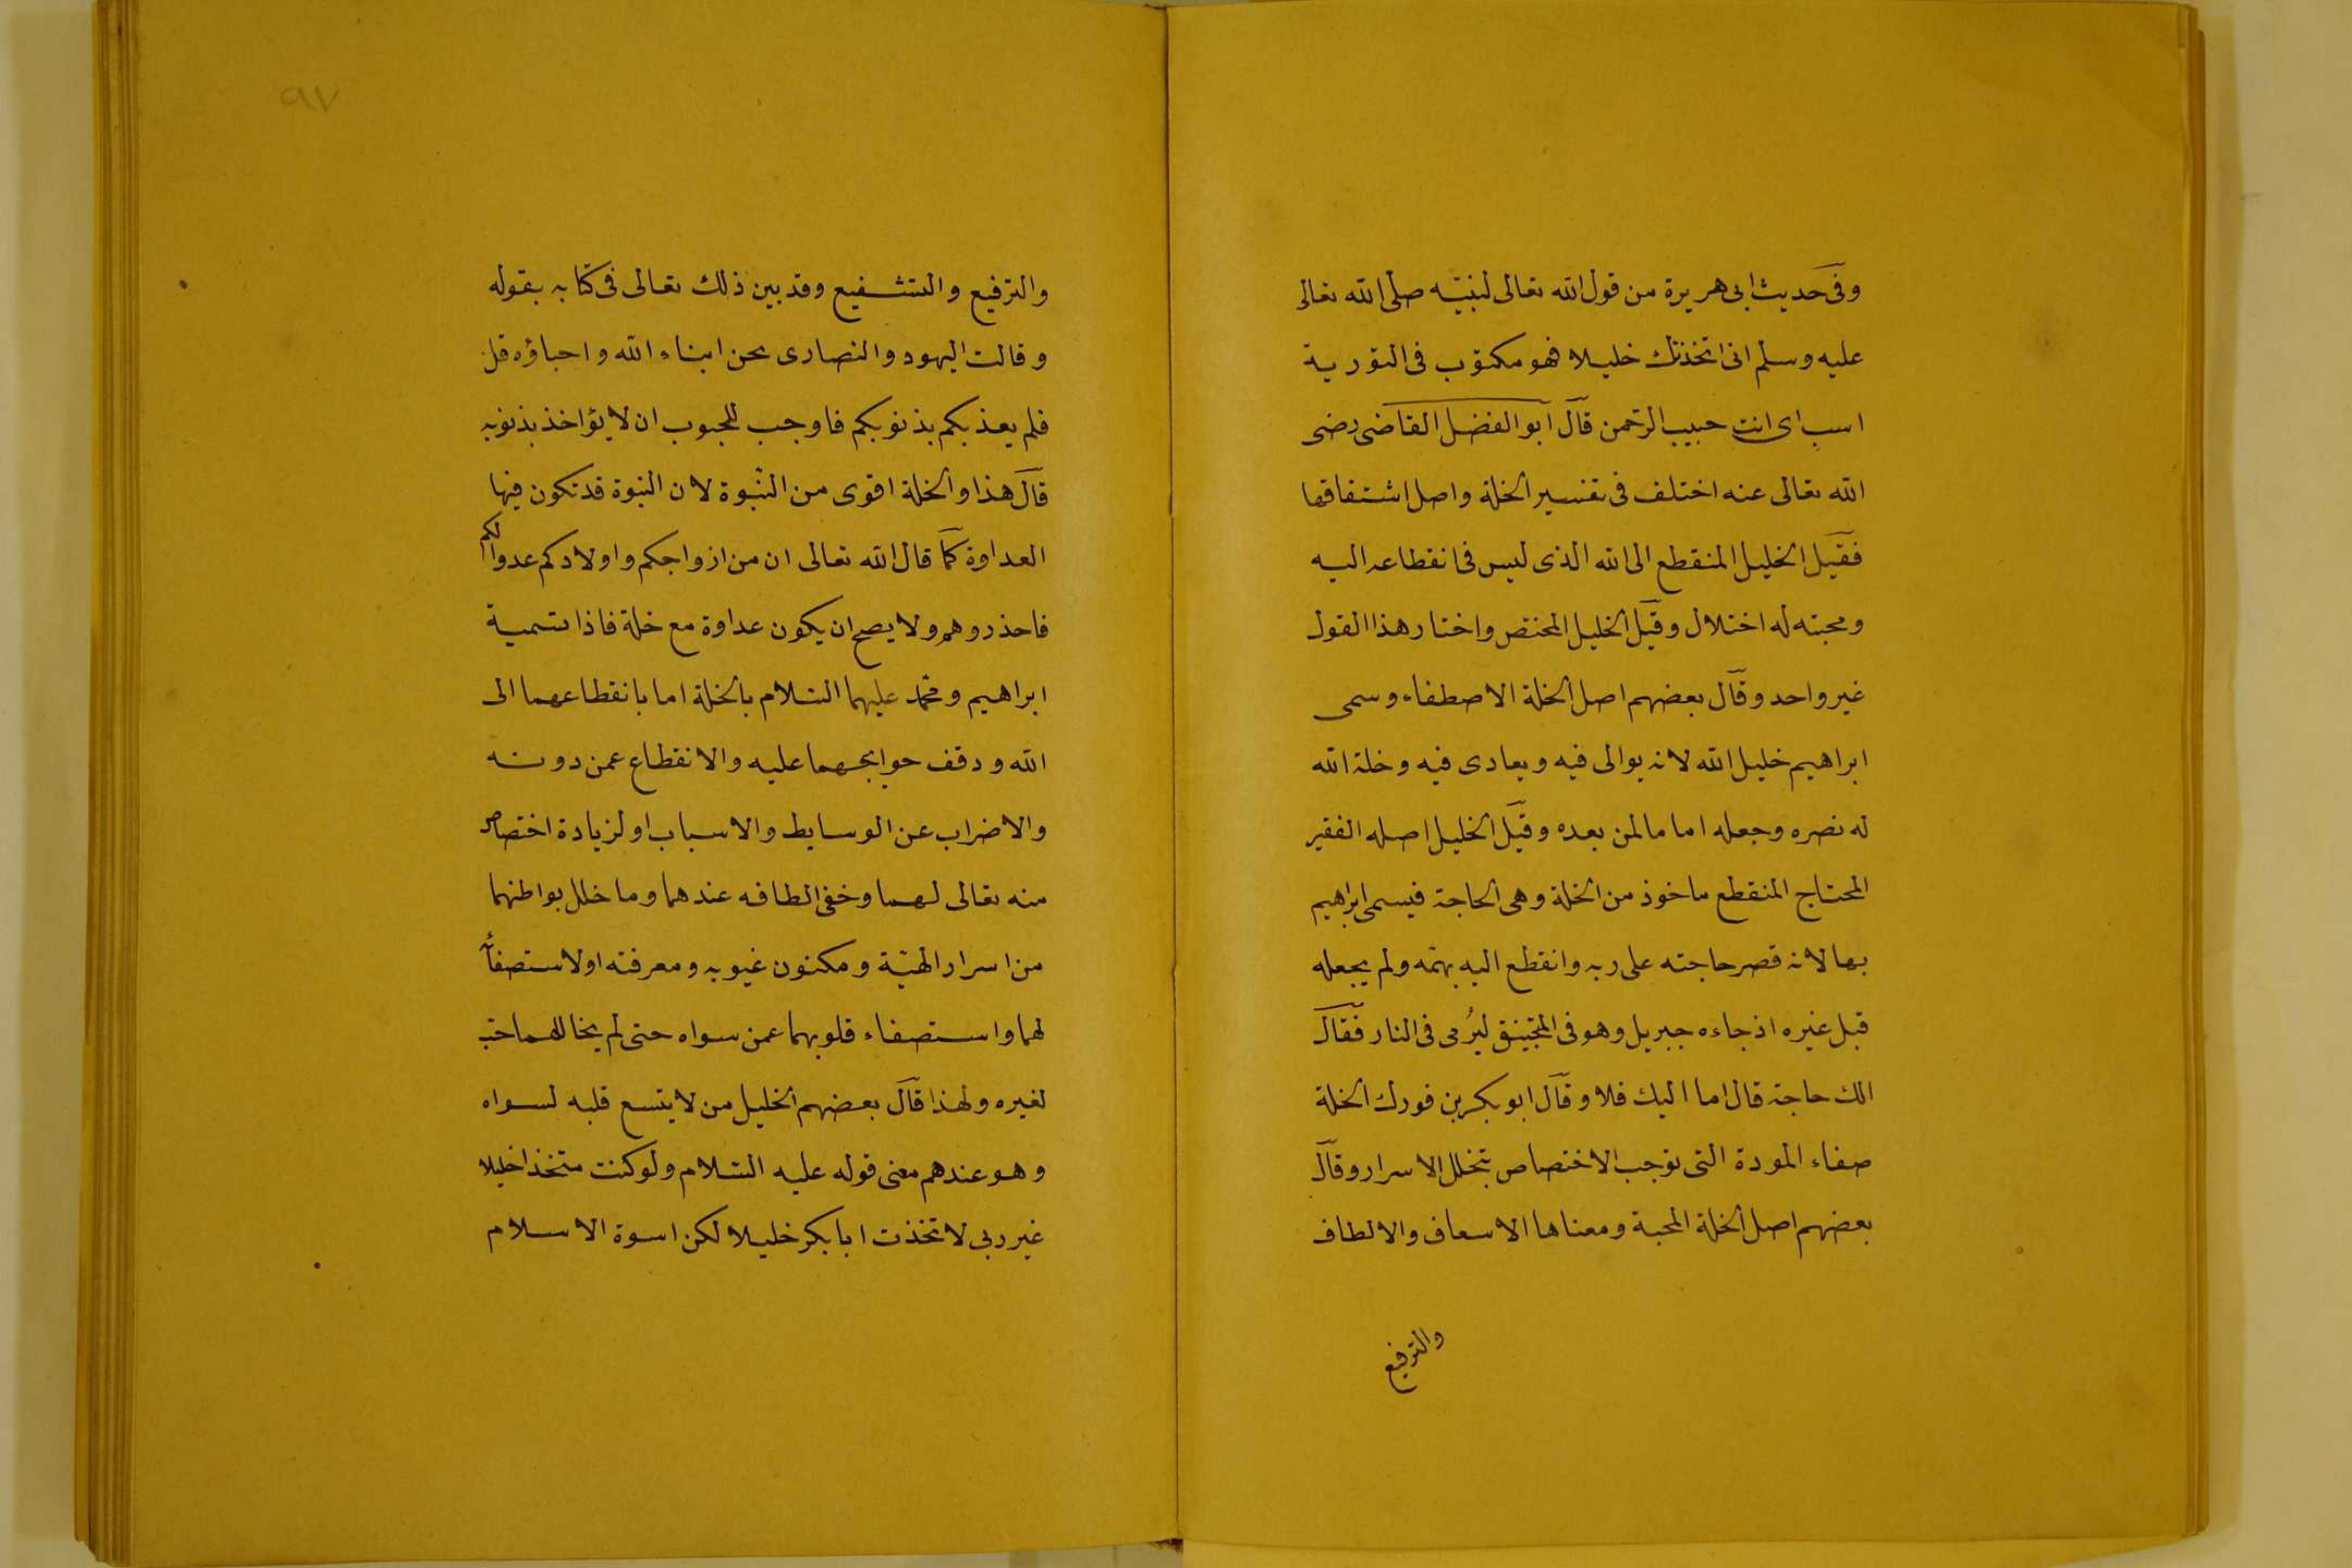 وفى حديث ابى هريرة من قول الله تعالى لنبيّه صلى الله تعالى
عليه وسلم انى اتخذتك خليلا فهو مكتوب فى التورية
اسب اى انت حبيب الرحمن قال ابو الفضل القاضى رضى
الله تعالى عنه اختلف فى تفسير الخلة واصل اشتقاقها
فقيل الخليل المنقطع الى الله الذى ليس فى انقطاعه اليه
ومحبته له اختلال وقيل الخليل المختص واختار هذا القول
غير واحد وقال بعضهم اصل الخلة الاصطفاء وسمى
ابراهيم خليل الله لانه يوالى فيه ويعادى فيه وخلة الله
له نصره وجعله اماما لمن بعده وقيل الخليل اصله الفقير
المحتاج المنقطع ماخوذ من الخلة وهى الحاجة فيسمى ابرهيم
بها لانه قصر حاجته على ربه وانقطع اليه بهمه ولم يجعله
قبل غيره اذ جاءه جبريل وهو فى المنجنيق ليُرمى فى النار فقال
الك حاجة قال اما اليك فلا وقال ابو بكر بن فورك الخلة
صفاء المودة التى توجب الاختصاص بتخلل الاسرار وقال
بعضهم اصل الخلة المحبة ومعناها الاسعاف والالطاف
والترفيع
٩٧
والترفيع والتشفيع وقد بين ذلك تعالى فى كتابه بقوله
وقالت اليهود والنصارى نحن ابناء الله واحباؤه قل
فلم يعذبكم بذنوبكم فاوجب للمحبوب ان لا يؤاخذ بذنوبه
قال هذا والخلة اقوى من النبوة لان النبوة قد تكون فيها
العداوة كما قال الله تعالى ان من ازواجكم واولادكم عدوا لكم
فاحذروهم ولا يصح ان يكون عداوة مع خلة فاذا تسمية
ابراهيم ومحمد عليهما السلام بالخلة اما بانقطاعهما الى
الله ووقف حوايجهما عليه والانقطاع عمن دونه
والاضراب عن الوسايط والاسباب او لزيادة اختصاص
منه تعالى لهما وخفى الطافه عندهما وما خلل بواطنهما
من اسرار الهيّة ومكنون غيوبه ومعرفته او لاستصفائه
لهما واستصفاء قلوبهما عمن سواه حتى لم يخاللهما حب
لغيره ولهذا قال بعضهم الخليل من لا يتسع قلبه لسواه
وهو عندهم معنى قوله عليه السلام ولو كنت متخذا خليلا
غير ربى لاتخذت ابا بكر خليلا لكن اسوة الاسلام